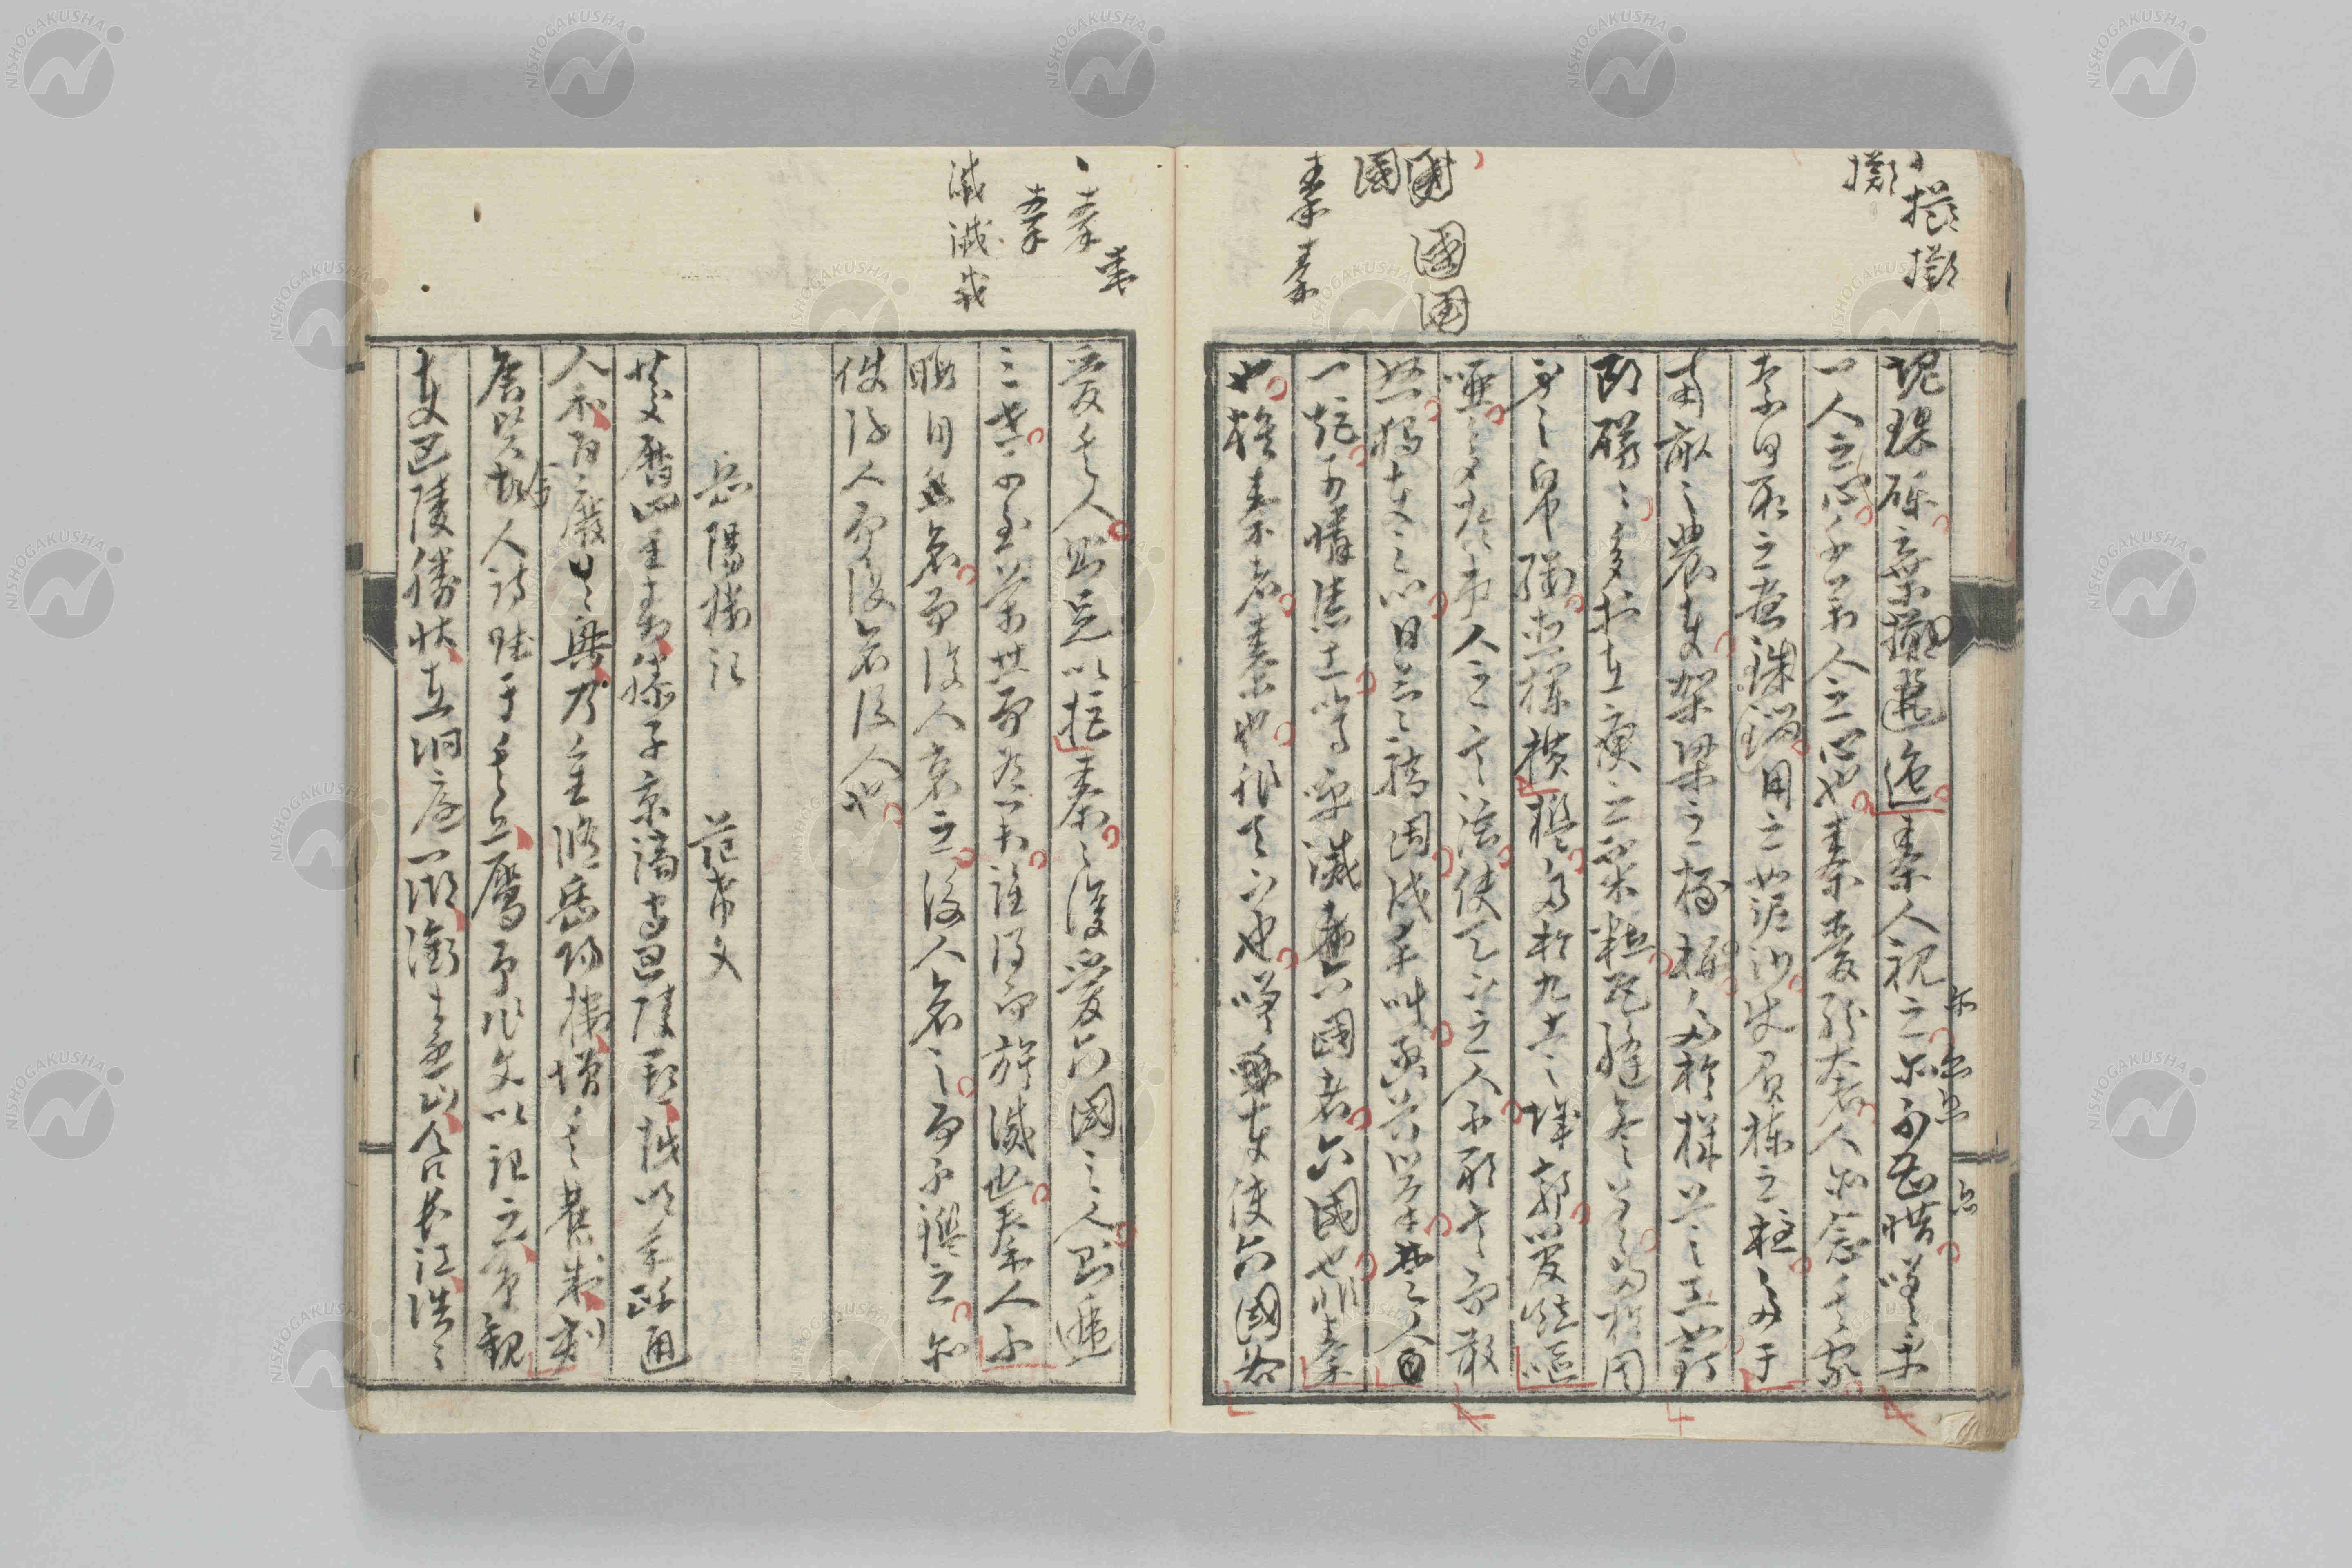 擲
擲
擲
國
國
國
國
秦
秦
塊珠礫棄擲邐迤秦人視之亦不甚惜嗟乎
一人之心千万人之心也秦愛紛奢人亦念其家
奈何取之盡銖錙用之如泥沙使負棟之柱多于
南畝之農夫架梁之椽多於機上之工女釘
頭磷〻多於在庾之粟粒瓦縫參差多於周
身之帛縷直欄橫檻多於九土之城郭管絃嘔
啞〻多於市人之言語使天下之人不敢言而敢
怒獨夫之心日益驕固戍卒叫函谷挙楚人
一炬可憐焦土嗚呼滅六國者六國也非秦
也族秦者秦也非天下也嗟乎使六國各
秦
秦
秦
滅滅
愛其人則足以拒秦〻復愛六國之人則遞
三世可至萬世而為君誰得而族滅也秦人不
暇自哀而後人哀之後人哀之而不鑑之亦
使後人而復哀後人也
岳陽樓記 范希文
慶曆四年春滕子京謫守巴陵郡越明年政通
人和百廢具興乃重修岳陽樓增其舊制刻
唐賢今人詩賦于其上屬予作文以記之予觀
夫巴陵勝狀在洞庭一湖銜遠山吞長江浩〻